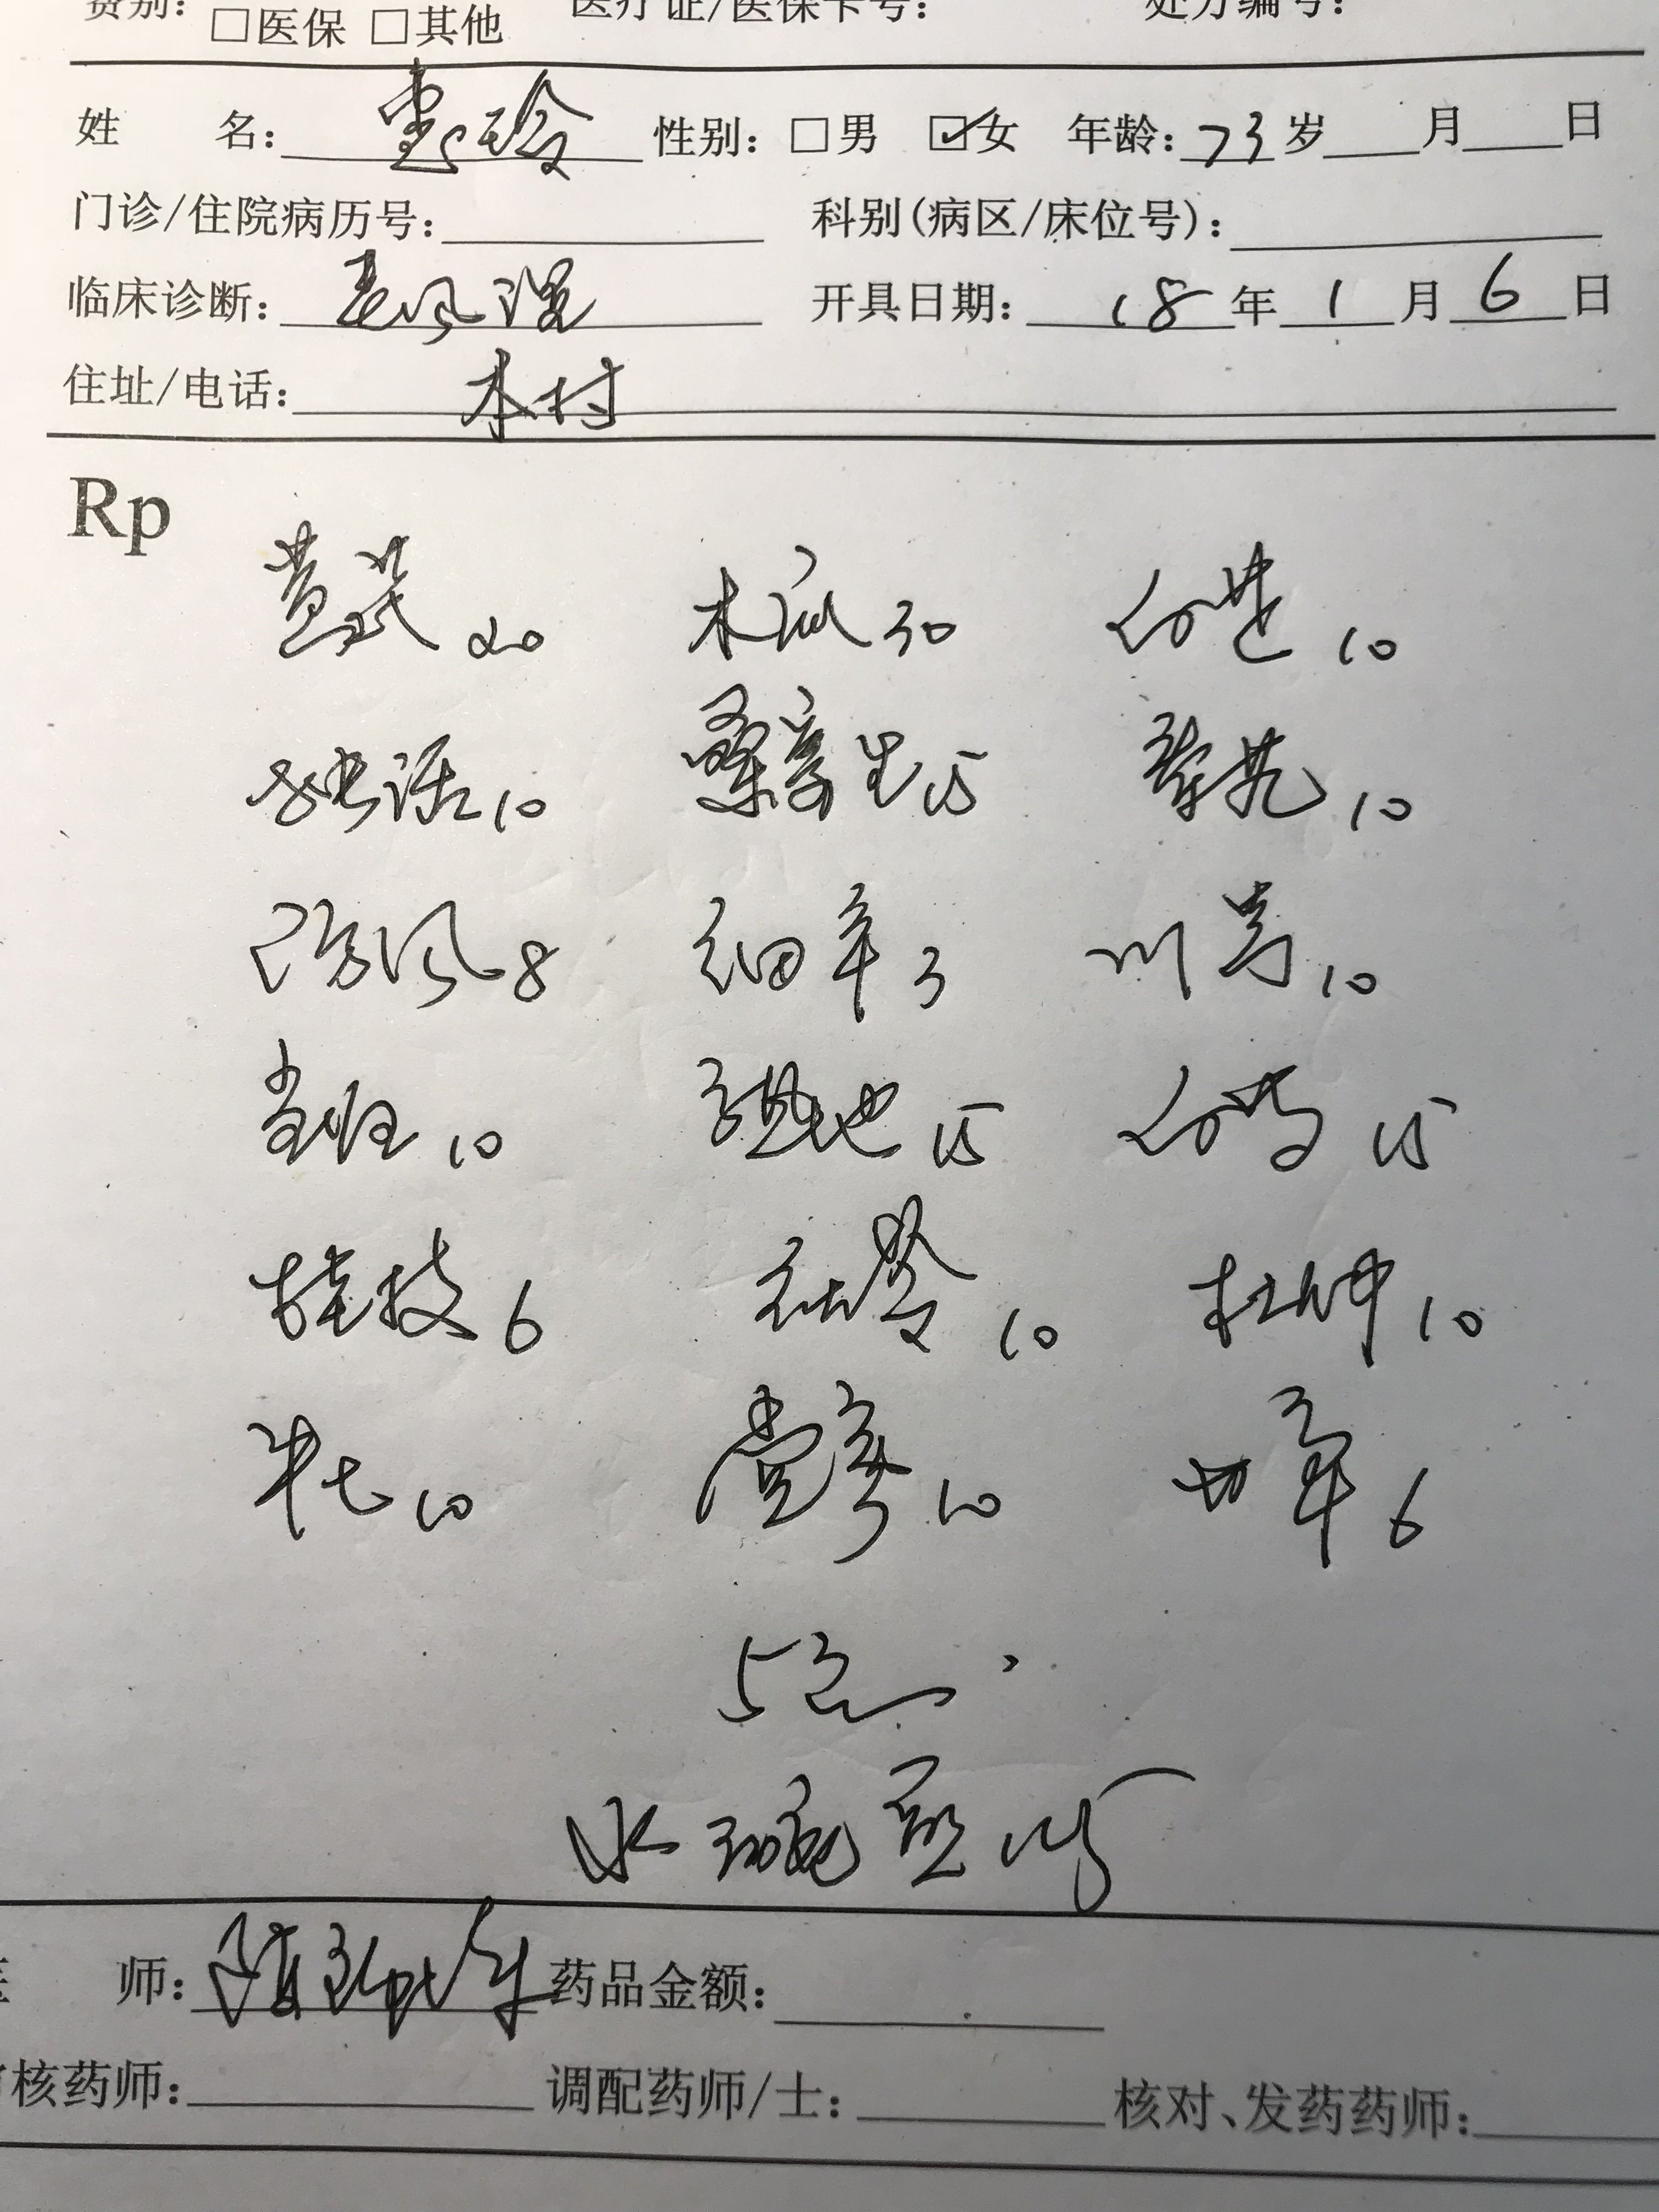 费别： □医保 □其他 医疗证/医保卡号： 处方编号：
姓 名： 惠玲 性别： □男 ☑女 年龄： 73 岁 月 日
门诊/住院病历号： 科别(病区/床位号)：
临床诊断： 开具日期： 18 年 1 月 6 日
住址/电话： 本村
Rp
黄芪 20 木瓜 30 10
独活 10 桑寄生 15 秦艽 10
防风 8 细辛 3 川芎 10
当归 10 熟地 15 白芍 15
桂枝 6 茯苓 10 杜仲 10
牛七 10 党参 10 甘草 6
5
水
师： 药品金额：
核药师： 调配药师/士： 核对、发药药师：